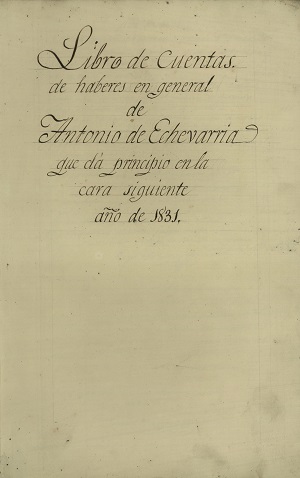 Libro de Cuentas.
de haberes en general
de
Antonio de Echevarria
que dá principio en la
cara siguiente
año de 1831.